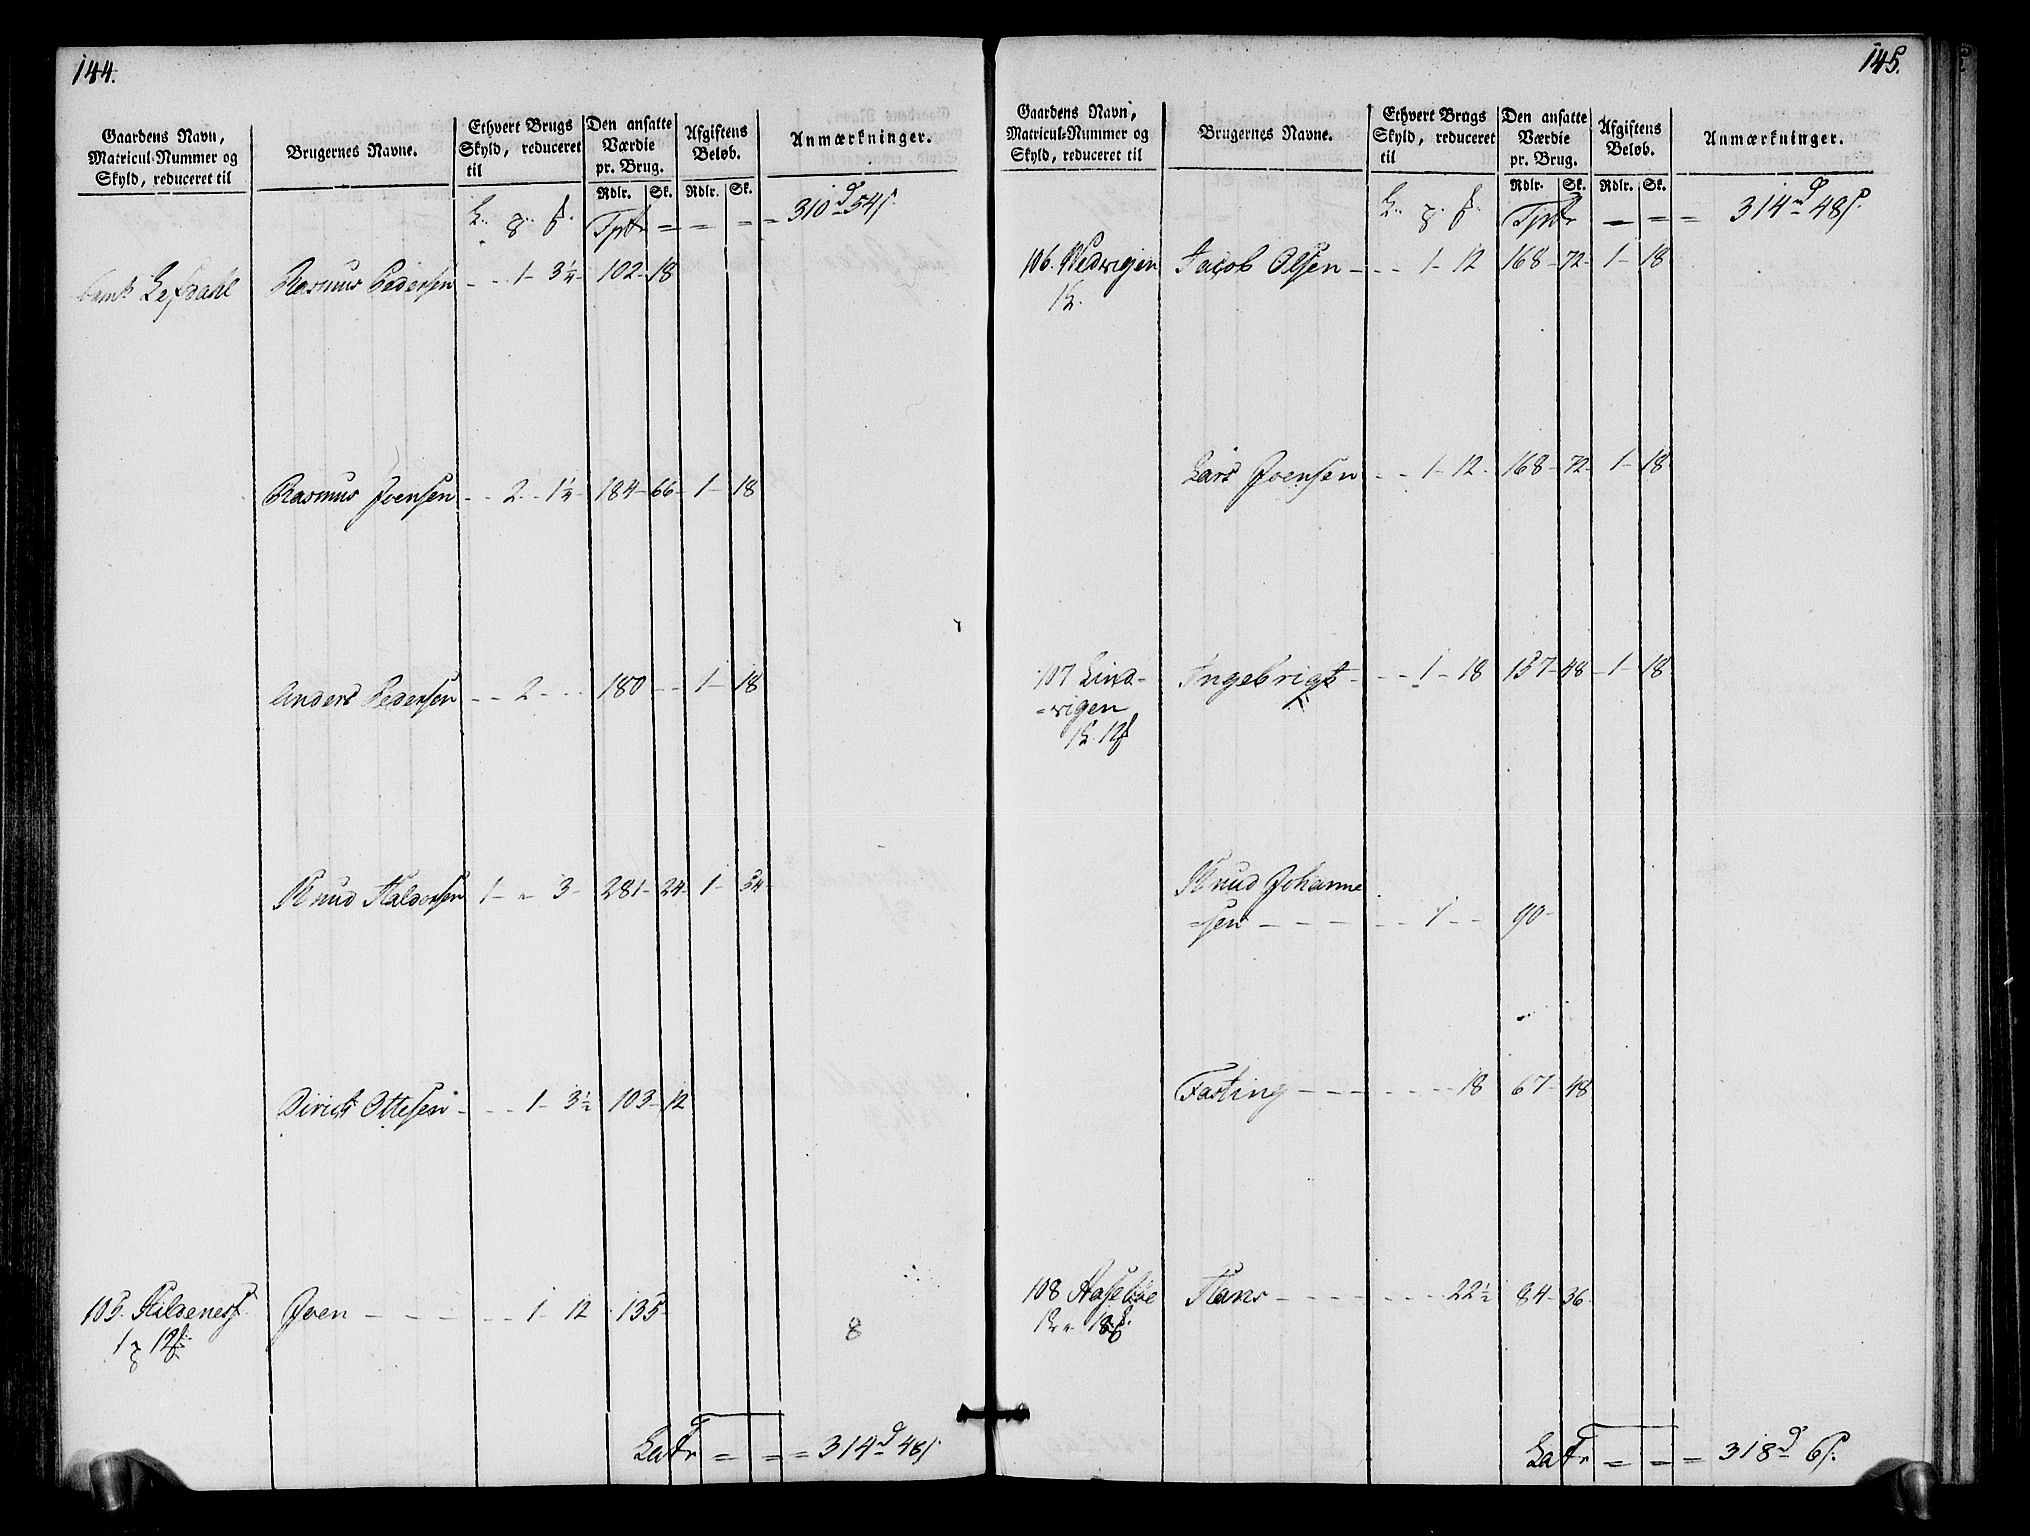 144.
Gaardens Navn,
Matricul-Nummer og
Skyld, reduceret til
Brugernes Navne.
Ethvert Brugs
Skyld, reduceret
til
Den ansatte
Værdie
pr. Brug.
Afgiftens
Beløb.
Anmærkninger.
Rdlr. Sk. Rdlr. Sk.
Tptr = = = = 310 d 54 s.
Lefdahl Rasmus Pedersen - - 1 - 3 1/4 - 102 - 18
Rasmus Joensen - - 2 - 1 1/4 - 184 - 66 - 1 - 18
Anders Pedersen - - 2 - - - 180 - - 1 - 18
Knud Haldorsen 1 - " 3 - 281 - 24 - 1 - 54 -
Dirich Ottesen - - - 1 - 3 1/2 103 - 12
105. Hildenesf Joen - - - - - - 1 - 12 - 135 -
1 12
8
Latr = = = 314 d 48 s.
145.
Gaardens Navn,
Matricul-Nummer og
Skyld, reduceret til
Brugernes Navne.
Ethvert Brugs
Skyld, reduceret
til
Den ansatte
Værdie
pr. Brug.
Afgiftens
Beløb.
Anmærkninger.
Rdlr. Sk. Rdlr. Sk.
Tptr - = = 314 d 48 s.
106. Nedrigen Jacob Olsen - - - 1 - 12 168 - 72 - 1 - 18
Lars Joensen - - 1 - 12 - 168 - 72 - 1 - 18
107 Lind- Ingebrigt - - - 1 - 18 157 - 48 - 1 - 18
=vigen
12
Knud Johanne
=sen - - - - - - 1 - - 90 -
Fasting - - - - - - - 18 67 - 48
108 Hans - - - - - - - 22 1/2 84 - 36
18
Latr = = = 318 d 6 s.